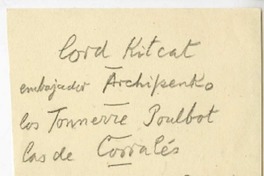 Lord Kitcat
embajador Archipenko
los Tonnerre Poulbot
las de Corralés